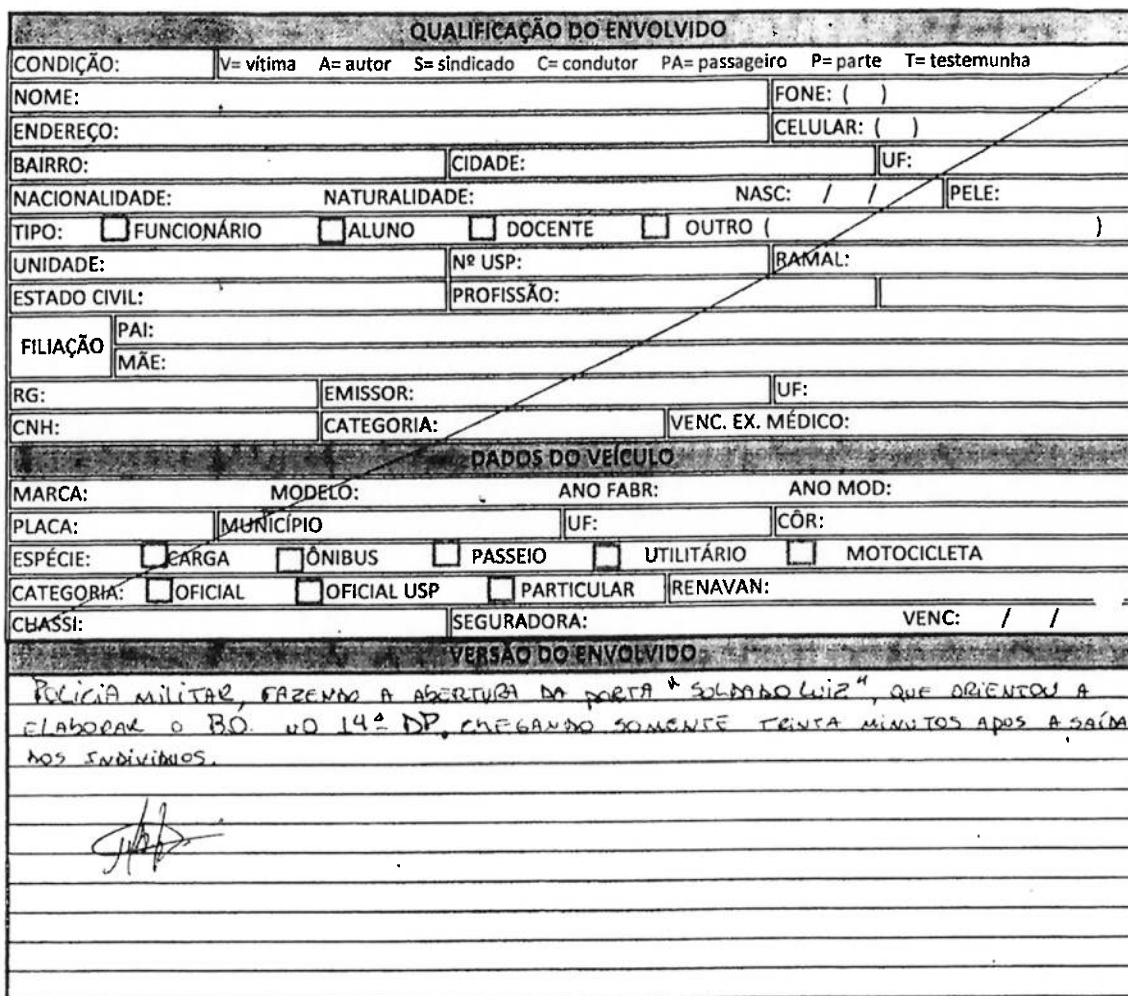 QUALIFICAÇÃO DO ENVOLVIDO
CONDIÇÃO: V= vítima A= autor S= sindicado C= condutor PA= passageiro P= parte T= testemunha
NOME: FONE: ( )
ENDEREÇO: CELULAR: ( )
BAIRRO: CIDADE: UF:
NACIONALIDADE: NATURALIDADE: NASC: / / PELE:
TIPO: FUNCIONÁRIO ALUNO DOCENTE OUTRO ( )
UNIDADE: Nº USP: RAMAL:
ESTADO CIVIL: PROFISSÃO:
FILIAÇÃO PAI:
MÃE:
RG: EMISSOR: UF:
CNH: CATEGORIA: VENC. EX. MÉDICO:
DADOS DO VEÍCULO
MARCA: MODELO: ANO FABR: ANO MOD:
PLACA: MUNICÍPIO UF: CÔR:
ESPÉCIE: CARGA ÔNIBUS PASSEIO UTILITÁRIO MOTOCICLETA
CATEGORIA: OFICIAL OFICIAL USP PARTICULAR RENAVAN:
CHASSI: SEGURADORA: VENC: / /
VERSÃO DO ENVOLVIDO
POLICIA MILITAR, FAZENDO A ABERTURA DA PORTA "SOLDADO LUIZ", QUE ORIENTOU A
ELABORAR O B.O. NO 14º DP, CHEGANDO SOMENTE TRINTA MINUTOS APOS A SAÍDA
DOS INDIVIDUOS.